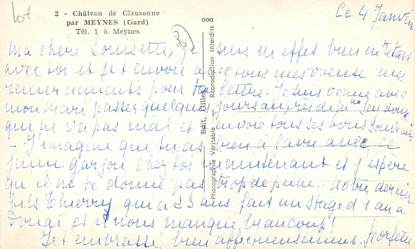 lot
2 - Château de Clausonne
par MEYNES (Gard)
Tél. 1 à Meynes
Le 4 Janvier
Ma chère je suis en effet bien en retard
avec toi et je t'envoie avec tous mes vœux mes
remerciements pour ta lettre. Je suis venu avec
mon mari passer quelques jours auprès de
qui ne va pas mal et envoie tous ses bons
J'imagine que tu as à faire avec ce
jeune garçon chez toi maintenant et j'espère
qu'il ne te donne pas trop de peine. Notre dernier
fils Thierry qui a 23 ans fait un stage d'1 an à
et il nous manque beaucoup !
Je t'embrasse bien affectueusement.
Edit. Dilley
Photographie Véritable - Reproduction Interdite